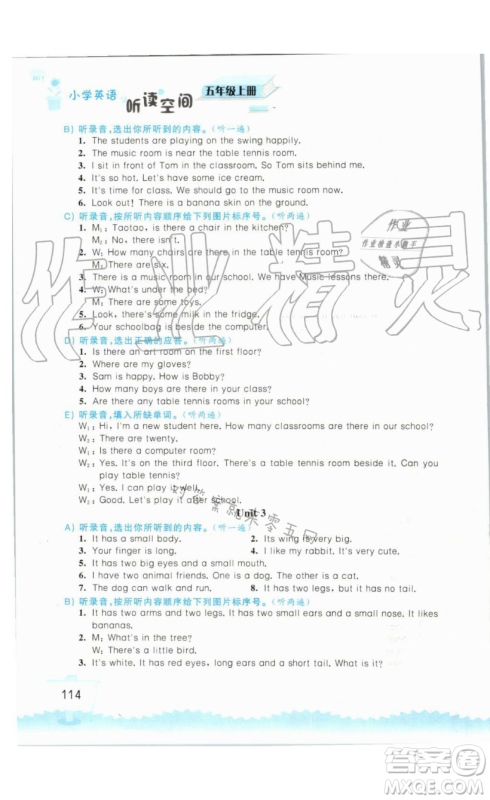 小学英语
听读空间
五年级上册
B) 听录音,选出你所听到的内容。(听一遍)
1. The students are playing on the swing happily.
2. The music room is near the table tennis room.
3. I sit in front of Tom in the classroom. So Tom sits behind me.
4. It's so hot. Let's have some ice creams.
5. It's time for class. We should go to the music room now.
6. Look out! There is a banana skin on the ground.
C) 听录音,按所听内容顺序给下列图片标序号。(听两遍)
1. M₁: Taotao, is there a chair in the kitchen?
M₂: No, there isn't.
2. W: How many chairs are there in the table tennis room?
M: There are six.
3. There is a music room in our school. We have Music lessons there.
4. W: What's under the bed?
M: There are some toys.
5. Look, there's some milk in the fridge.
6. Your schoolbag is beside the computer.
D) 听录音,选出正确的应答。(听两遍)
1. Is there an art room on the first floor?
2. Where are my gloves?
3. Sam is happy. How is Bobby?
4. How many boys are there in your class?
5. Are there any table tennis rooms in your school?
E) 听录音,填入所缺单词。(听两遍)
W₁: Hi, I'm a new student here. How many classrooms are there in our school?
W₂: There are twenty.
W₁: Is there a computer room?
W₂: Yes. It's on the third floor. There's a table tennis room beside it. Can you play table tennis?
W₁: Yes, I can play it well.
W₂: Good. Let's go and play.
Unit 3
A) 听录音,选出你所听到的内容。(听一遍)
1. It has a small body.
2. Its wing is very big.
3. Your finger is long.
4. I like my rabbit. It's very cute.
5. It has two big eyes and a small mouth.
6. I have two animal friends. One is a dog. The other one is a cat.
7. The dog can walk and run.
8. It has two legs, but it has no tail.
B) 听录音,按所听内容顺序给下列图片标序号。(听两遍)
1. It has two arms and two legs. It has two big ears and a small nose. It likes
bananas.
2. M: What's in the tree?
W: There is a little bird.
3. It's white. It has red eyes. It has two long ears. Is it a rabbit?
114
作业精灵
作业
作业检查小助手
精灵
对答案就来零五网
答案圈
MXQE.COM